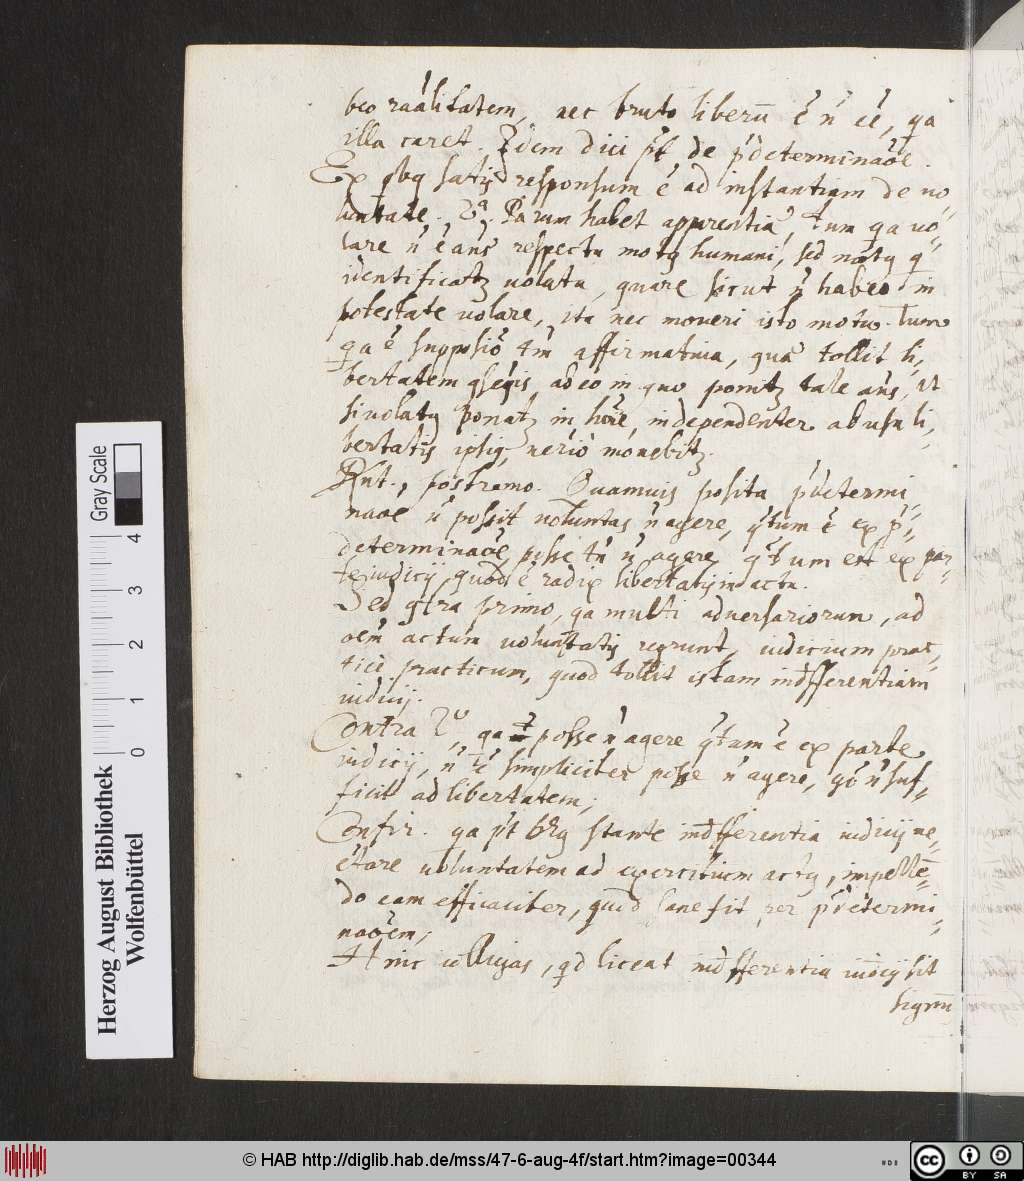 beo raãlitatem, nec bruto liberũ ẽ ñ eẽ, qa
illa caret. Idem dici p̃t de p̃determinaõe.
Ex qbq satis responsum ẽ ad instantiam de uo-
luntate. 2ª. Parum habet apparentiã, tum qa uo-
lare ñ ẽ añs respectu motq humani, sed motq q̃
identificatz uolatu, quare sicut ñ habeo in
potestate uolare, ita nec moueri isto motu. Tum
qa ẽ supposiõ 4m̃ affirmatiua, quã tollit li,
bertatem qseqis, adeo in quo ponitz tale añs, ut
si uolatq ponatz in hoiẽ, independenter ab usu li,
bertatis ipsiq, neriõ mouebitz.
Rnt., postremo. Quamuis posita p̃determi
naoẽ ñ possit uoluntas ñ agere, q̃tum ẽ ex p̃-
determinaõe, posse tñ ñ agere q̃tum est ex par
te iudicij, quod ẽ radix libertatis in actu.
Sed q̃tra primo, qa multi aduersariorum, ad
oem̃ actum uoluntatis reqrunt, iudicium prac,
tice practicum, quod tollit istam indifferentiam
iudicij.
Contra 2º, qa posse ñ agere q̃tum ẽ ex parte
iudicij, ñ ẽ simpliciter posse ñ agere, gõ ñ suf-
ficit ad libertatem;
Confir. qa p̃t stante indifferentia iudicij ne-
c̃tare uoluntatem ad exercitium actq, impellẽ-
do eam efficaciter, quod sane fit per p̃determi
naoẽm;
Hinc colligas, qd liceat indifferentia iudicij sit
signũ
Gray Scale
4
3
2
1
0
Herzog August Bibliothek
Wolfenbüttel
© HAB http://diglib.hab.de/mss/47-6-aug-4f/start.htm?image=00344
cc BY SA